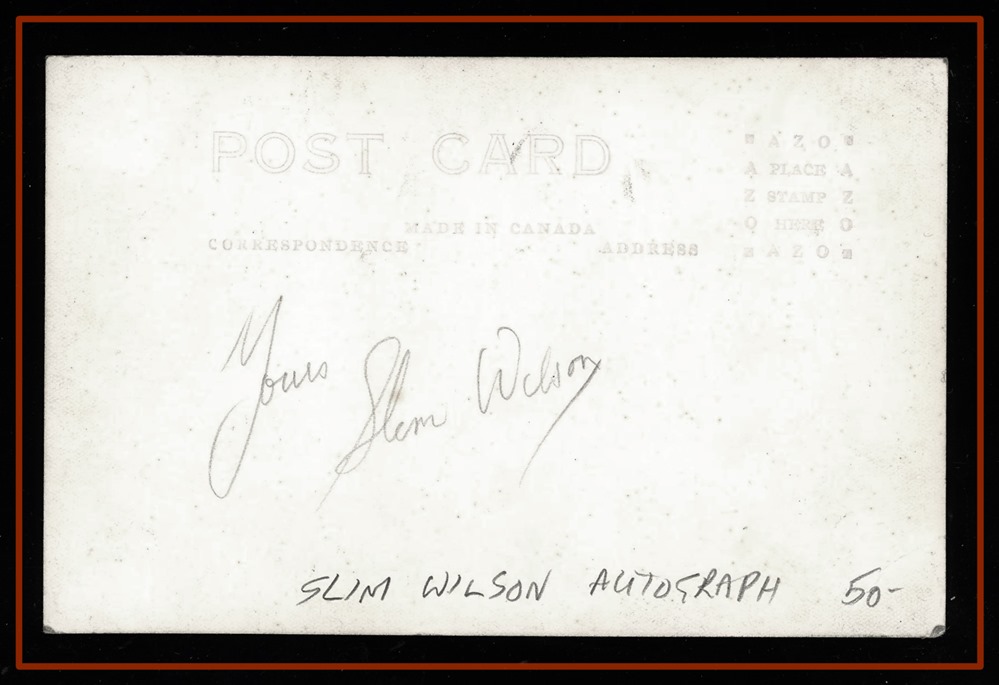 POST CARD
MADE IN CANADA
CORRESPONDENCE ADDRESS
AZO
A PLACE A
Z STAMP Z
O HERE O
AZO
Yours Slim Wilson
SLIM WILSON AUTOGRAPH 50-